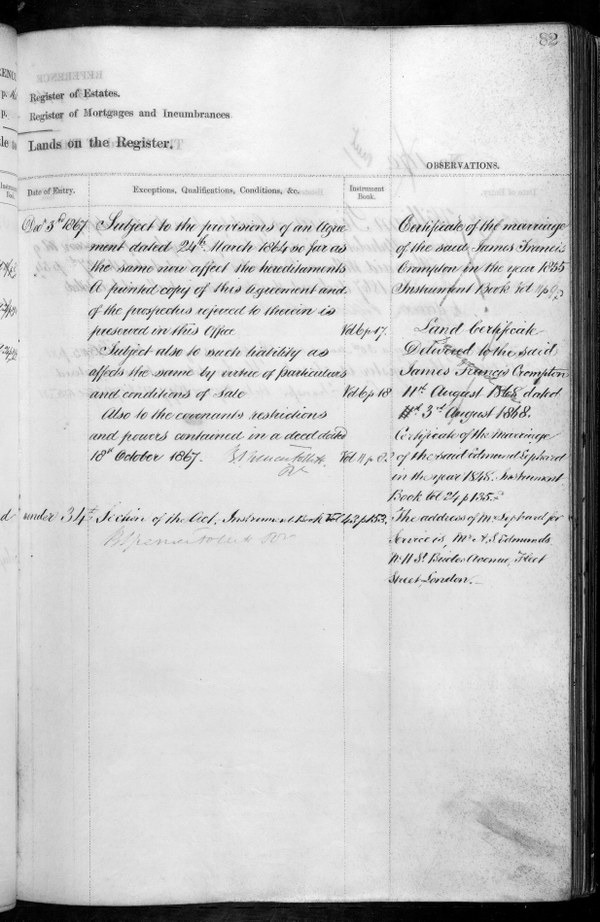 82
Register of Estates.
Register of Mortgages and Incumbrances
Lands on the Register.
OBSERVATIONS.
Date of Entry.
Exceptions, Qualifications, Conditions, &c.
Instrument Book.
Decr 3d 1867
Subject to the provisions of an Agree
ment dated 24th March 1864 so far as
the same now affect the hereditaments
A printed copy of this Agreement and
of the prospectus referred to therein is
preserved in this Office Vol 6 p 17.
Subject also to such liability as
affects the same by virtue of particulars
and conditions of Sale Vol 6 p 18
Also to the covenants restrictions
and powers contained in a deed dated
18th October 1867. Vol 11 p
under 34th Section of the Act. Instrument Book Vol 43 p 153.
Certificate of the marriage
of the said James Francis
Crompton in the year 1835
Instrument Book Vol 11 p
Land Certificate
Delivered to the said
James Francis Crompton
11th August 1868, dated
3rd August 1868.
Certificate of the marriage
of the said Edmund Sephard
in the year 1848. Instrument
Book Vol 24 p 135.
The address of Mr Sephard for
Service is, Mr A. S. Edmunds
St Brides Avenue, Fleet
Street London.